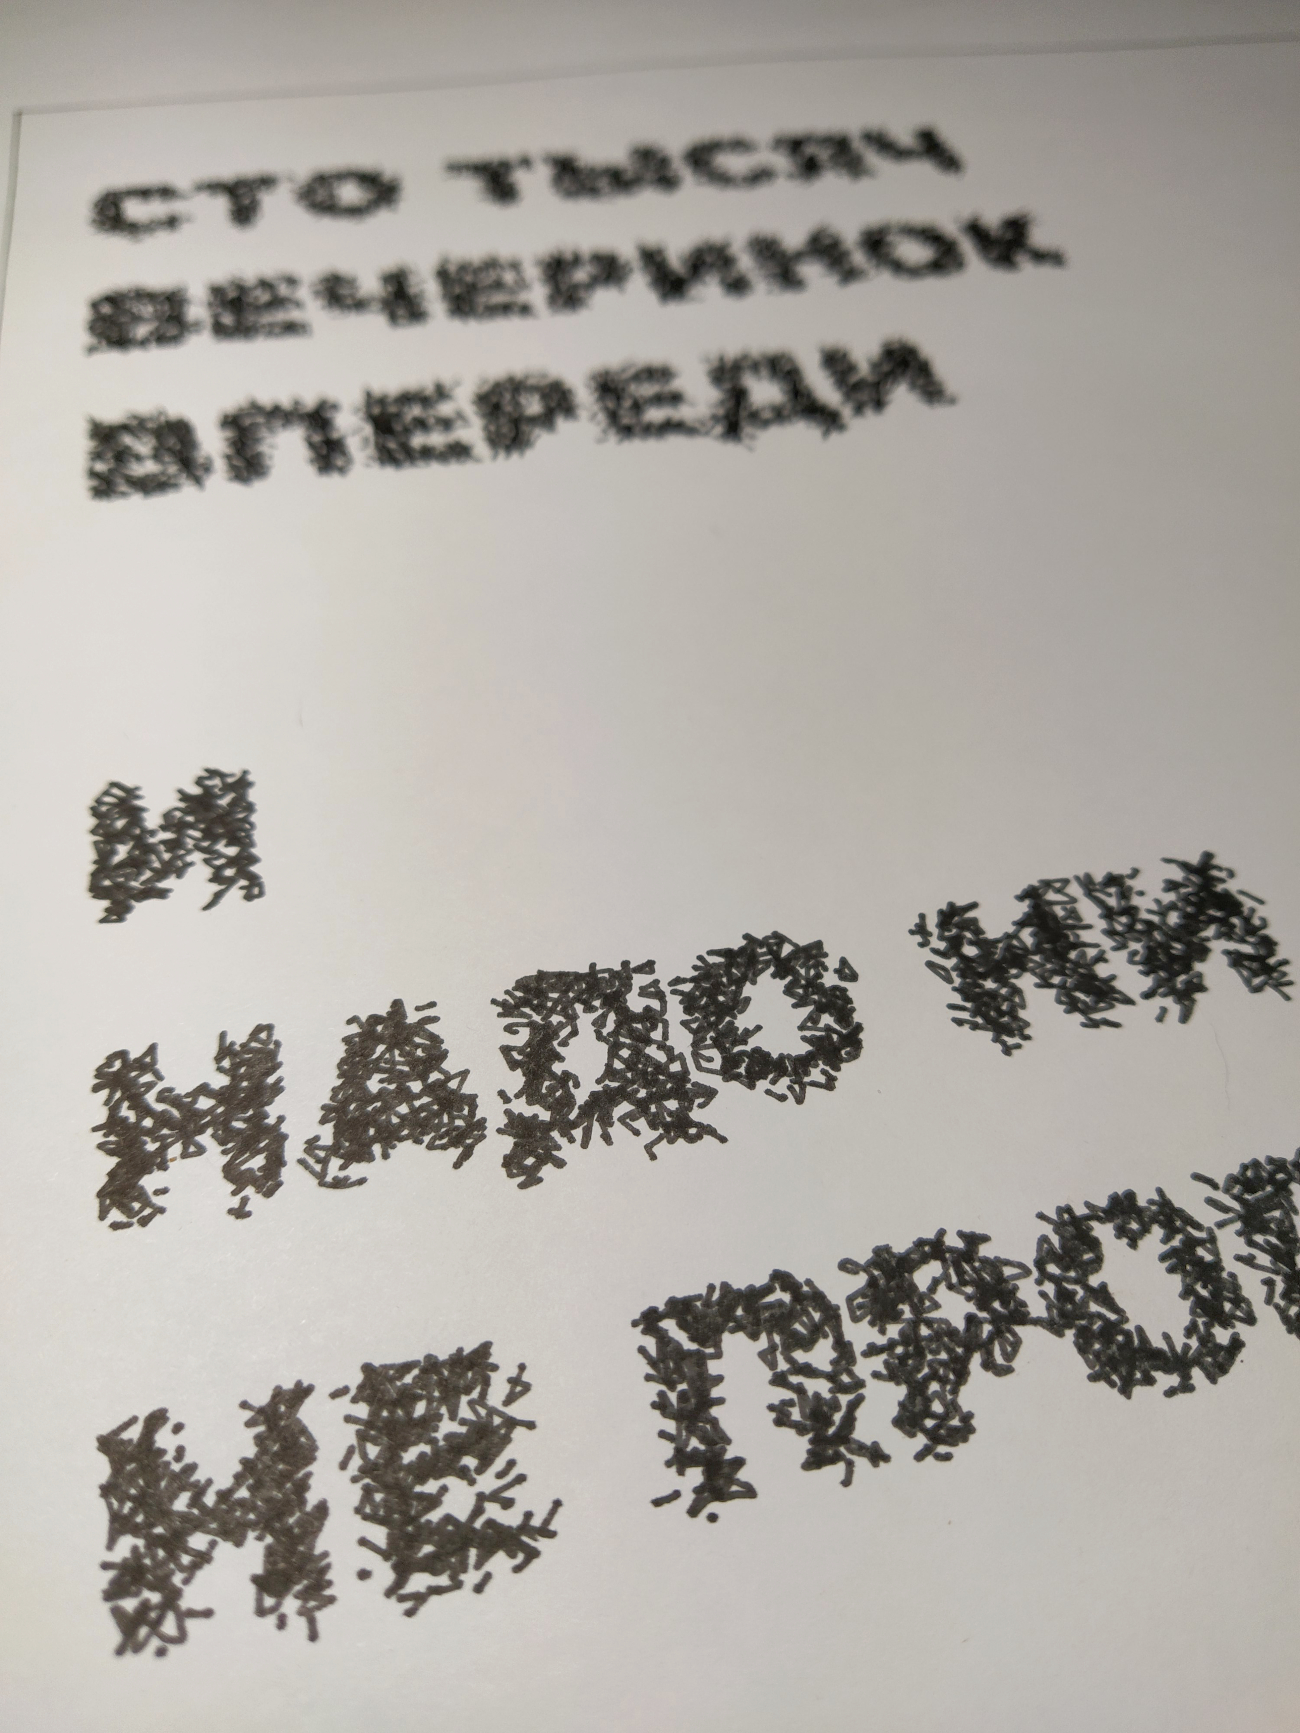 СТО ТЫСЯЧ
ВЕЧЕРИНОК
ВПЕРЕДИ
И
НАДО НИ
НЕ ПРО